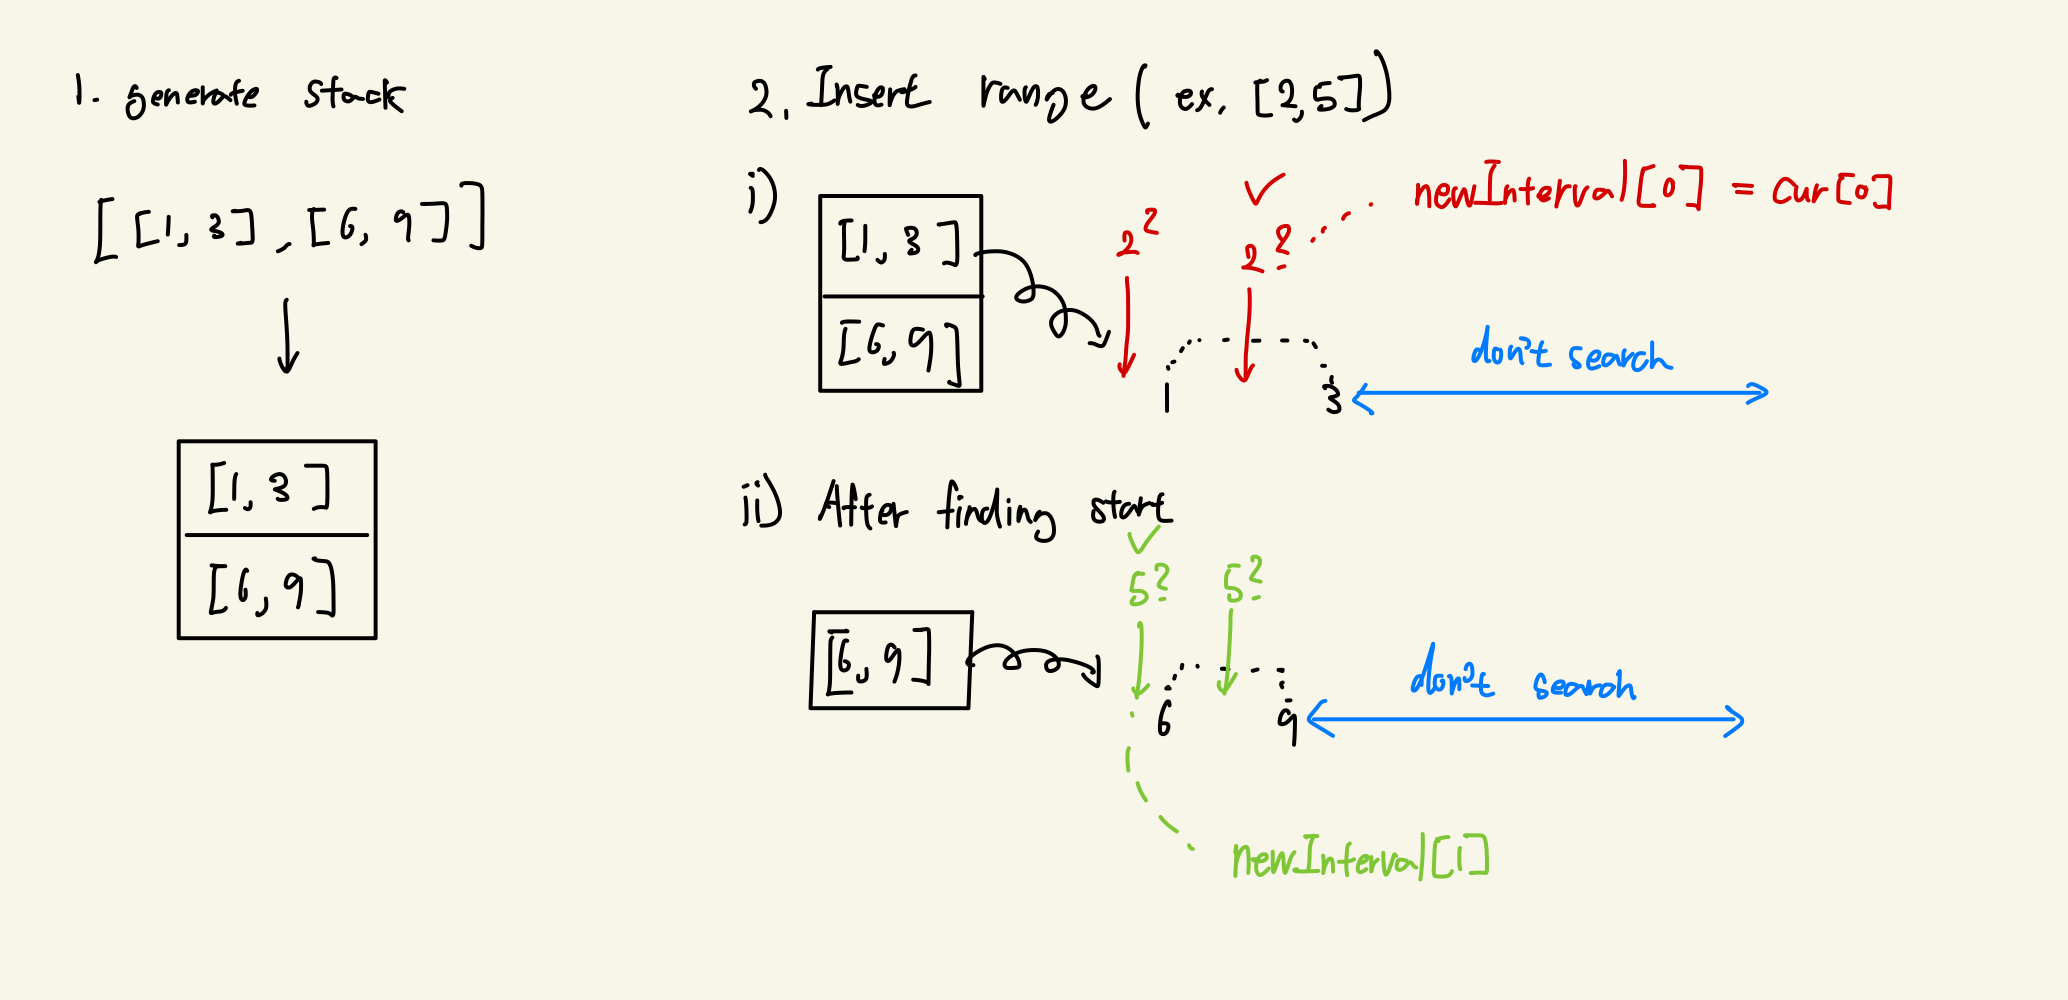 1. generate stack
[[1, 3], [6, 9]]
[1, 3]
[6, 9]
2. Insert range (ex. [2,5])
i)
[1, 3]
[6, 9]
2?
2?
newInterval[0] = cur[0]
1
3
don't search
ii) After finding start
5?
5?
[6, 9]
6
9
don't search
newInterval[1]